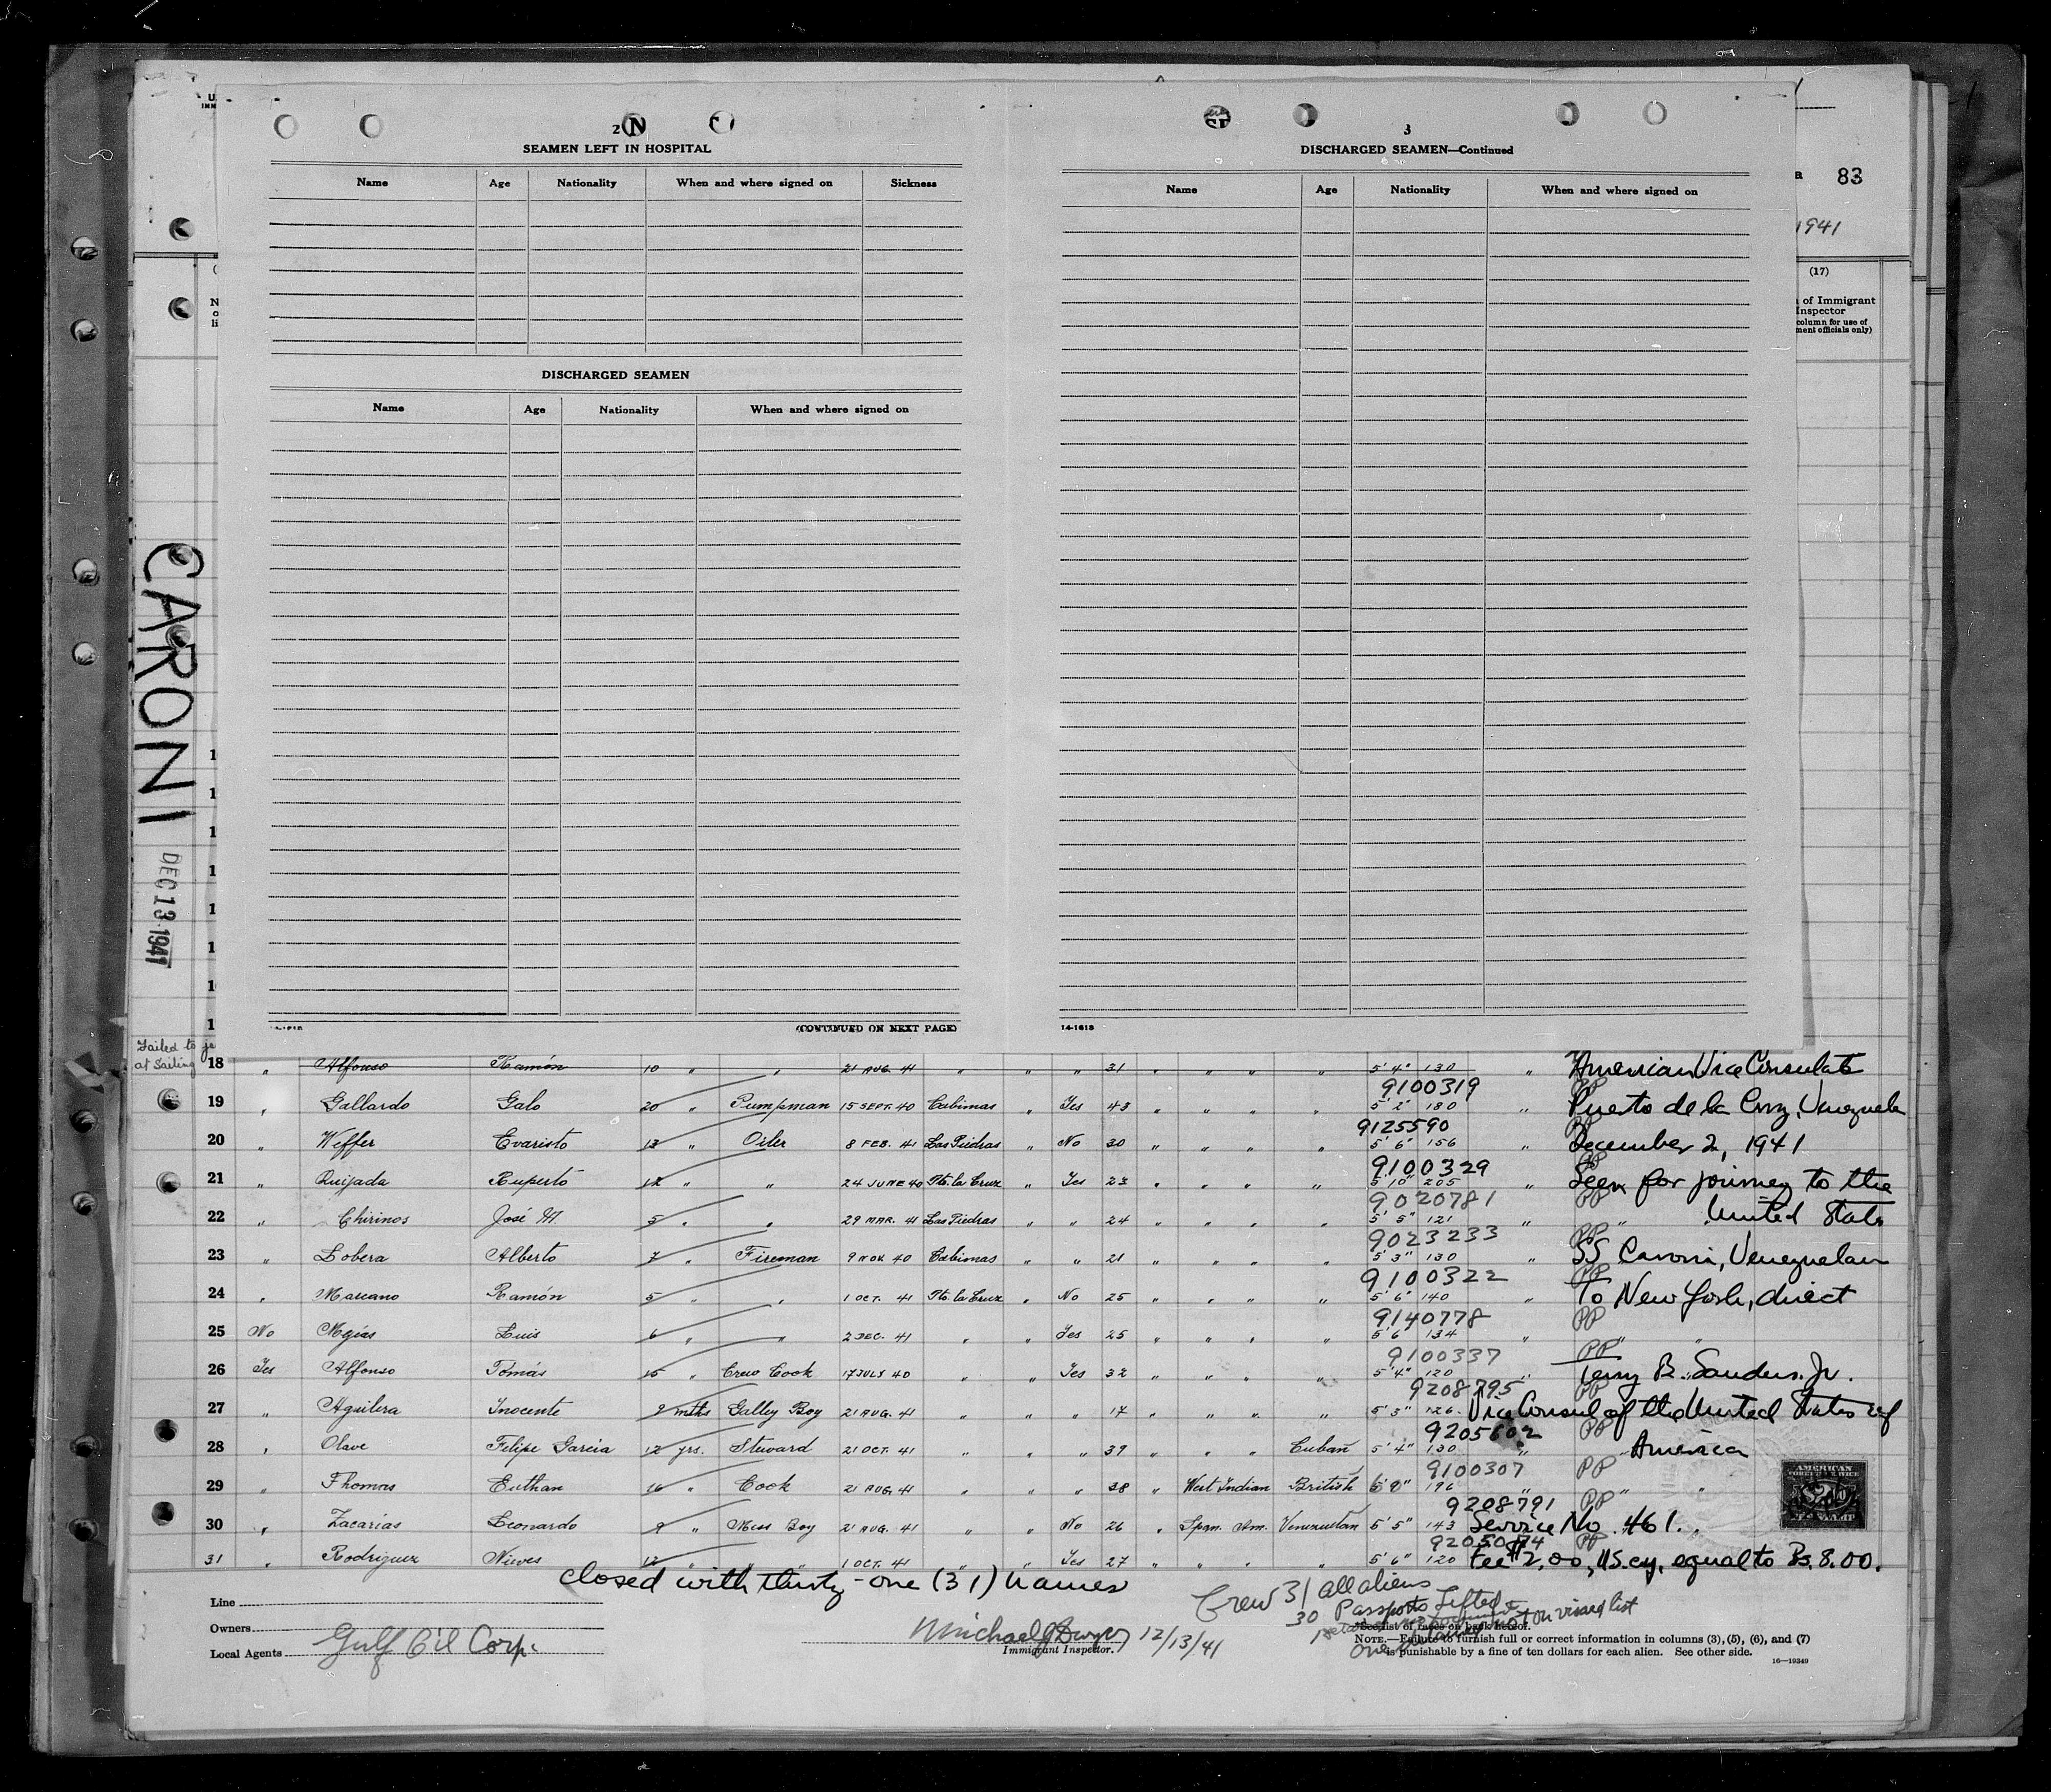 2
SEAMEN LEFT IN HOSPITAL
Name Age Nationality When and where signed on Sickness
DISCHARGED SEAMEN
Name Age Nationality When and where signed on
(CONTINUED ON NEXT PAGE)
3
DISCHARGED SEAMEN—Continued
Name Age Nationality When and where signed on
14-1618
83
1941
(17)
of Immigrant
Inspector
column for use of
ment officials only)
CARONI
DEC 13 1941
Failed to
at Sailing
18 " Alfonso Ramón 10 " " 21 AUG. 41 " " " 31 " " " " 5' 4" 130 " American Vice Consulate
9100319 PP
19 " Gallardo Galo 20 " Pumpman 15 SEPT. 40 Cabimas " Yes 43 " " " " 5' 2" 180 " Puerto de la Cruz, Venezuela
9125590
20 " Weffer Evaristo 13 " Oiler 8 FEB. 41 Las Piedras " No 30 " " " " 5' 6" 156 " December 2, 1941
9100329 PP
21 " Quijada Ruperto 12 " " 24 JUNE 40 Pto. la Cruz " Yes 23 " " " " 5' 10" 205 " Seen for journey to the
9020781 PP
22 " Chirinos José M. 5 " " 29 MAR. 41 Las Piedras " " 24 " " " " 5' 5" 121 " United States
9023233 PP
23 " Lobera Alberto 7 " Fireman 9 NOV. 40 Cabimas " " 21 " " " " 5' 3" 130 " SS Caroni, Venezuelan
9100322 PP
24 " Marcano Ramón 5 " " 1 OCT. 41 Pto. la Cruz " No 25 " " " " 5' 6" 140 " To New York, direct
9140778 PP
25 No Mejias Luis 6 " " 2 DEC. 41 " " Yes 25 " " " " 5' 6" 134 "
9100337 PP
26 Yes Alfonso Tomás 15 " Crew Cook 17 JULY 40 " " Yes 32 " " " " 5' 4" 120 " Terry B. Sanders, Jr.
9208795 PP
27 " Aguilera Inocente 9 mths Galley Boy 21 AUG. 41 " " " 17 " " " " 5' 3" 126 Vice Consul of the United States of
9205602 PP
28 " Olave Felipe Garcia 12 yrs. Steward 21 OCT. 41 " " " 39 " " " Cuban 5' 4" 130 " America
9100307 PP
29 " Thomas Euthan 26 " Cook 21 AUG. 41 " " " 38 " West Indian British 196 "
9208791 PP
30 " Zacarias Leonardo 9 " Mess Boy 21 AUG. 41 " " No 26 " Span. Am. Venezuelan 5' 5" 143 Service No. 461.
9205074 PP
31 " Rodriguez Nieves 12 " " " 1 OCT. 41 " " Yes 27 " " " " 5' 6" 120 Fee $2.00, US cy, equal to Bs. 8.00.
closed with thirty-one (31) names
AMERICAN
Line
Owners
Local Agents Gulf Oil Corp.
Michael J Dwyer 12/13/41
Immigrant Inspector.
Crew 31 all aliens
30 Passports Lifted
not on visaed list
See list of races on back hereof.
NOTE.—Failure to furnish full or correct information in columns (3), (5), (6), and (7)
is punishable by a fine of ten dollars for each alien. See other side.
16—19349